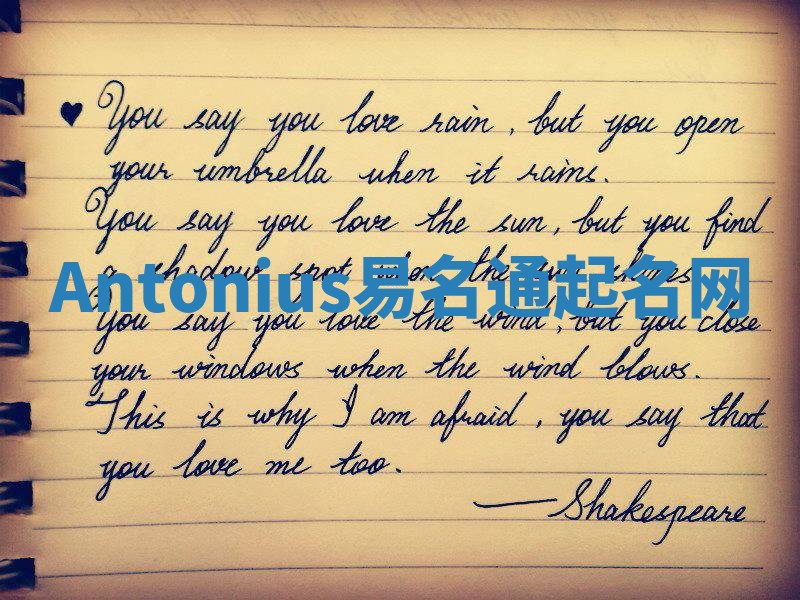 ♥ You say you love rain, but you open
your umbrella when it rains.
You say you love the sun, but you find
a shadow spot when the sun shines.
Antonius易名通起名网
You say you love the wind, but you close
your windows when the wind blows.
This is why I am afraid, you say that
you love me too.
—Shakespeare